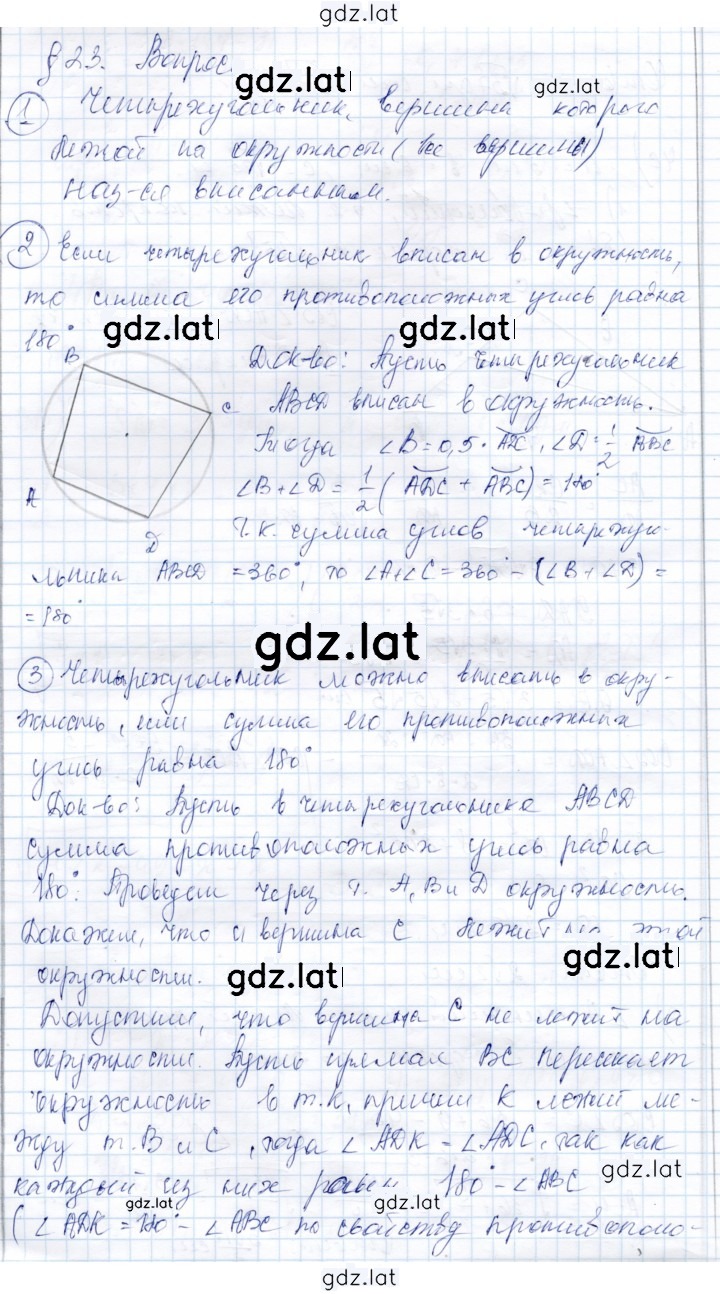 gdz.lat
§ 23. Вопрос.
gdz.lat
gdz.lat
1 Четырехугольник, вершина которого
лежой на окружности (все вершины)
наз-ся вписанным.
2 Если четырехугольник вписан в окружность,
то сумма его противоположных углов равна
180°
gdz.lat
gdz.lat
B
C
A
D
Док-во: Пусть четырехугольник
ABCD вписан в окружность.
Тогда ∠B = 0,5 · ADC, ∠D = 1/2 ABC
∠B + ∠D = 1/2 ( ADC + ABC ) = 180°
Т.к. сумма углов четырехуго-
льника ABCD = 360°, то ∠A+∠C = 360° - (∠B + ∠D) =
= 180°
gdz.lat
3 Четырехугольник можно вписать в окру-
жность, если сумма его противоположных
углов равна 180°
Док-во: Пусть в четырехугольника ABCD
сумма противоположных углов равна
180°. Проведем через т. A, B и D окружность.
Докажем, что и вершина C лежит на этой
окружности.
gdz.lat
gdz.lat
Допустим, что вершина C не лежит на
окружности. Пусть прямая BC пересекает
окружность в т. K, причем K лежит ме-
жду т. B и C, тогда ∠ADK = ∠ADC, так как
каждый из них равен 180° - ∠ABC
gdz.lat
gdz.lat
gdz.lat
(∠ADK = 180° - ∠ABC по свойству противополо-
gdz.lat